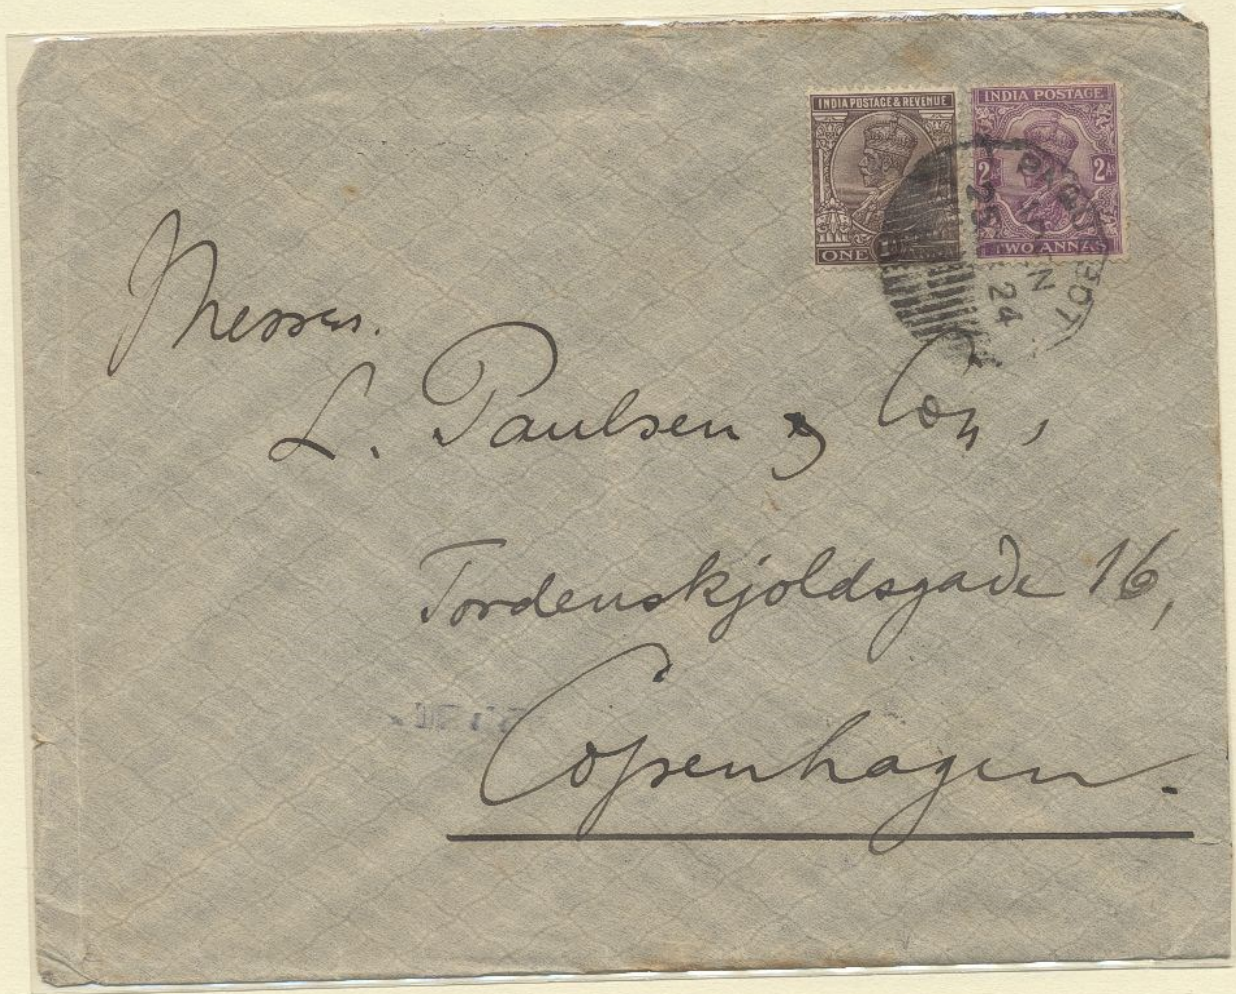 INDIA POSTAGE & REVENUE
ONE
INDIA POSTAGE
2As 2As
TWO ANNAS
24
Messrs.
L. Paulsen & Coy,
Tordenskjoldsgade 16,
Copenhagen.